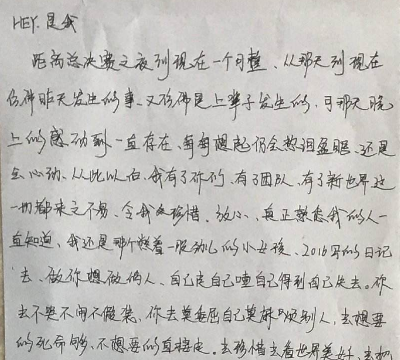 HEY.是我
距离总决赛之夜到现在一个月整.从那天到现在
仿佛昨天发生的事.又仿佛是上辈子发生的.可那天晚
上的感动到一直存在.每每想起仍会热泪盈眶.还是
会心动.从此以后.我有了你们.有了团队.有了新世界这
一切都来之不易.会我会珍惜.放心.真正熟悉我的人一
直知道.我还是那个憋着一股劲儿的小女孩.2016写的日记
去.做你想做的人.自己走自己嗑自己得到自己失去.你
去不哭不闹不假装.你去莫委屈自己莫麻烦别人.去想要
的死命够.不想要的直接走.去珍惜去看世界美好.去把